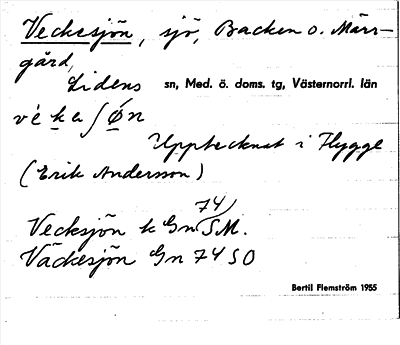 Veckesjön, sjö, Backen o. Märr-
gård,
Lidens sn, Med. ö. doms. tg, Västernorrl. län
vé k e ʃ ø n
Upptecknat i Flygge
(Erik Andersson)
74
Vecksjön k Gn SM.
Väckesjön Gn 74 SO
Bertil Flemström 1955